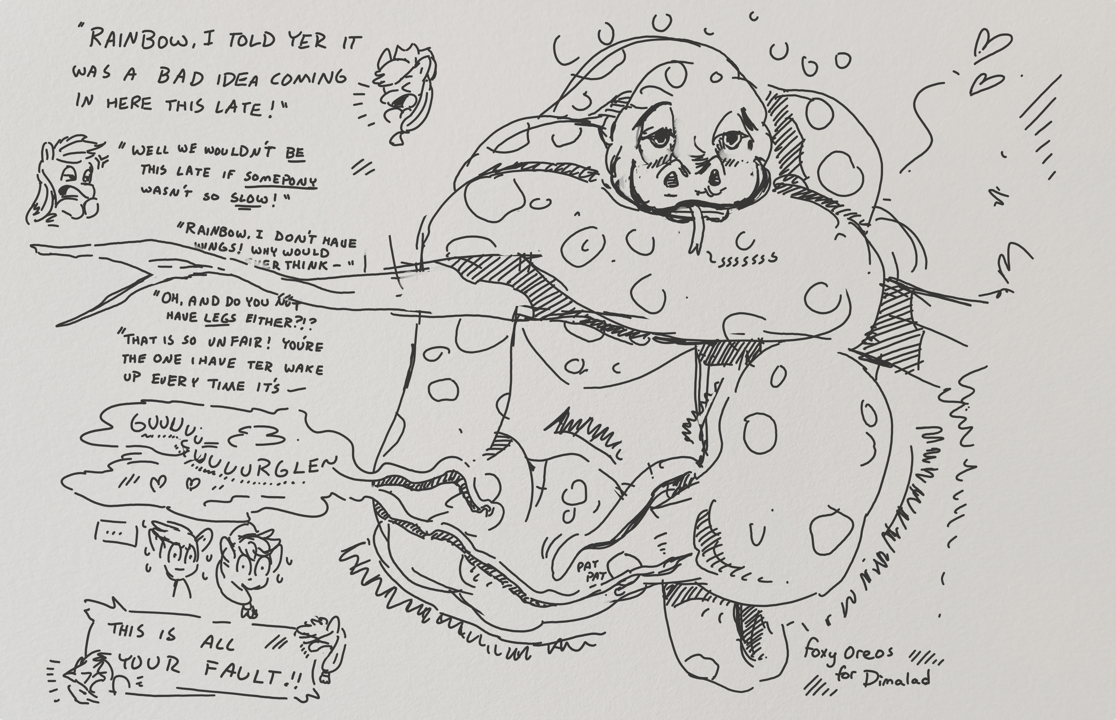 "RAINBOW, I TOLD YER IT
WAS A BAD IDEA COMING
IN HERE THIS LATE!"
"WELL WE WOULDN'T BE
THIS LATE IF SOMEPONY
WASN'T SO SLOW!"
"RAINBOW, I DON'T HAVE
WINGS! WHY WOULD
THINK-"
"OH, AND DO YOU NOT
HAVE LEGS EITHER?!?
"THAT IS SO UNFAIR! YOU'RE
THE ONE I HAVE TER WAKE
UP EVERY TIME IT'S —
ssssss
GUUUU
UUUURGLEN
PAT
PAT
...
THIS IS ALL
YOUR FAULT!!
foxy oreos
for Dimalad